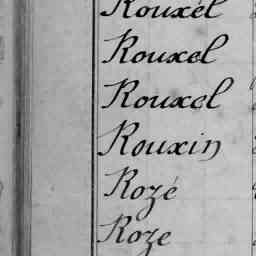 Rouxel
Rouxel
Rouxel
Rouxin
Rozé
Roze